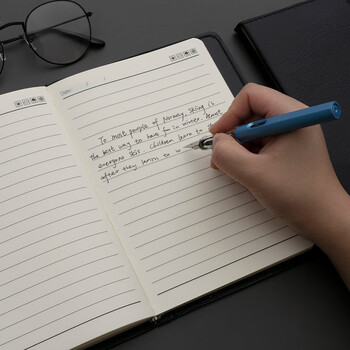 To most people of Norway, Skiing is
the best way to have fun in winter. Almost
everyone skis. Children learn to
after they learn to w